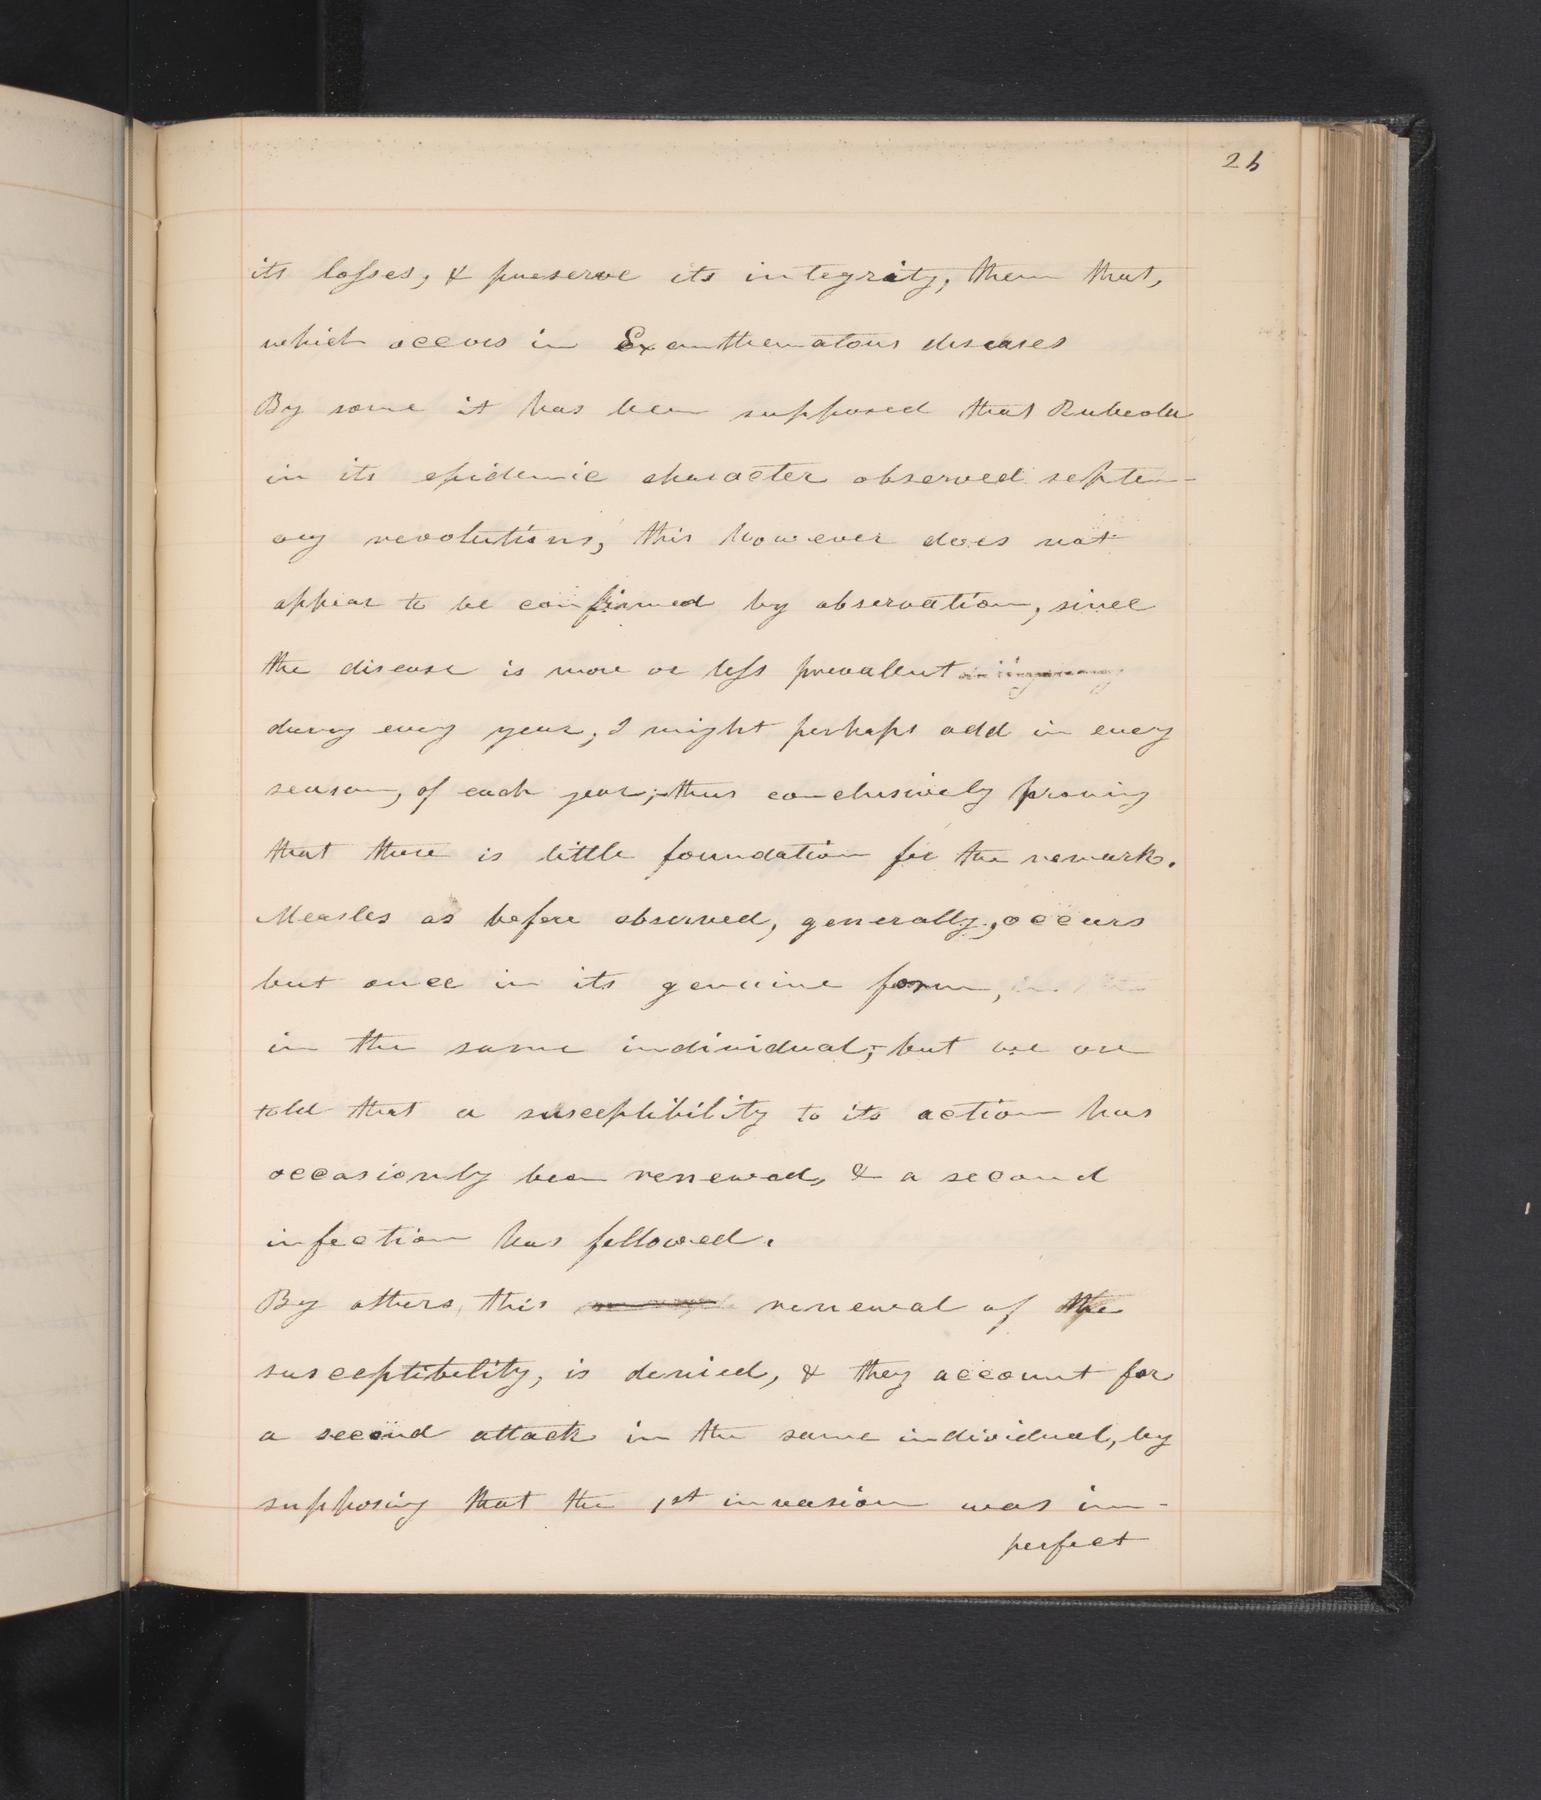 26
its losses, & preserve its integrity, then that,
which occurs in Exanthematous diseases
By some it has been supposed that Rubeola
in its epidemic character observed septen-
ary revolutions, this however does not
appear to be confirmed by observation, since
the disease is more or less prevalent
during every year, I might perhaps add in every
season, of each year;-thus conclusively proving
that there is little foundation for the remark.
Measles as before observed, generally, occurs
but once in its genuine form,
in the same individual,- but we are
told that a susceptibility to its action has
occasionly been renewed, & a second
infection has followed.
By others, this renewal of the
susceptibility, is denied, & they account for
a second attack in the same individual, by
supposing that the 1st invasion was im-
perfect